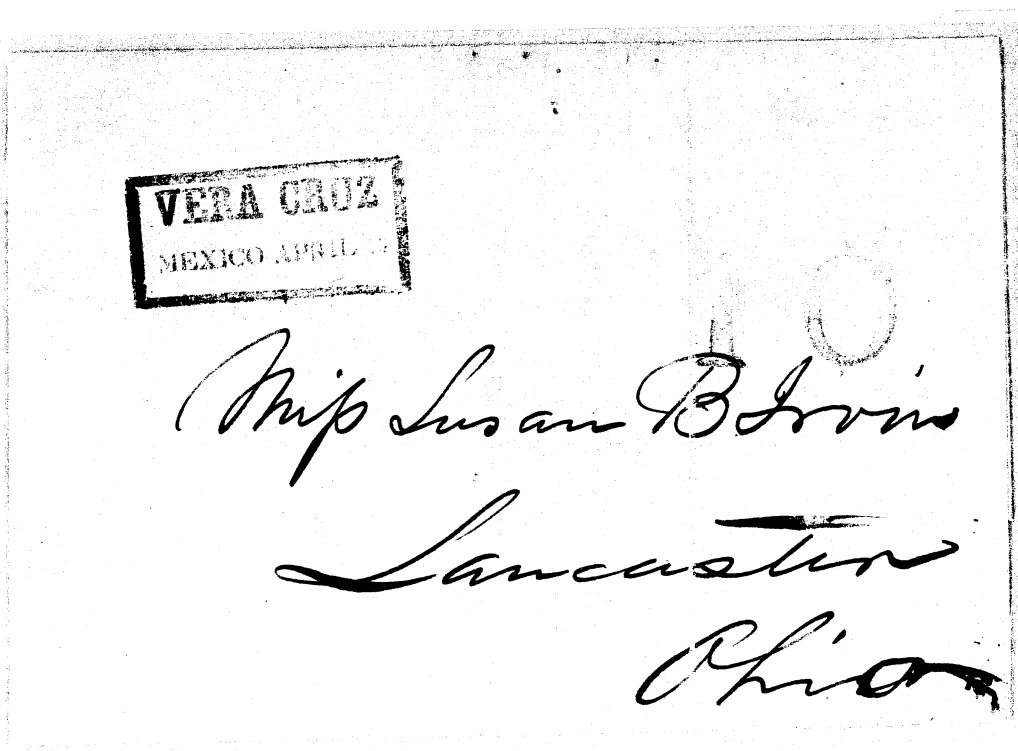 VERA CRUZ
MEXICO APRIL
10
Miss Susan B Irvin
Lancaster
Ohio